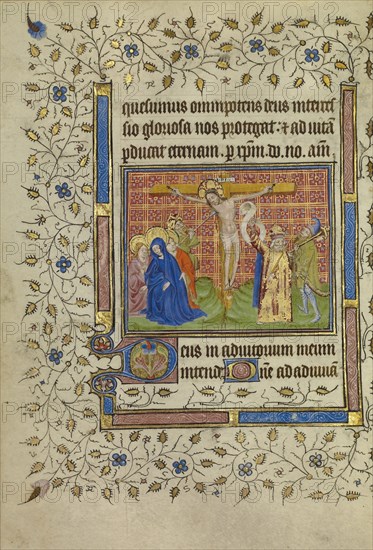 quesumus omnipotens deus interces
sio gloriosa nos protegat: & ad vitā
pducat eternam. p xpm. dn. no. Am
Deus in adiutorium meum
intende Dne ad adiuuā